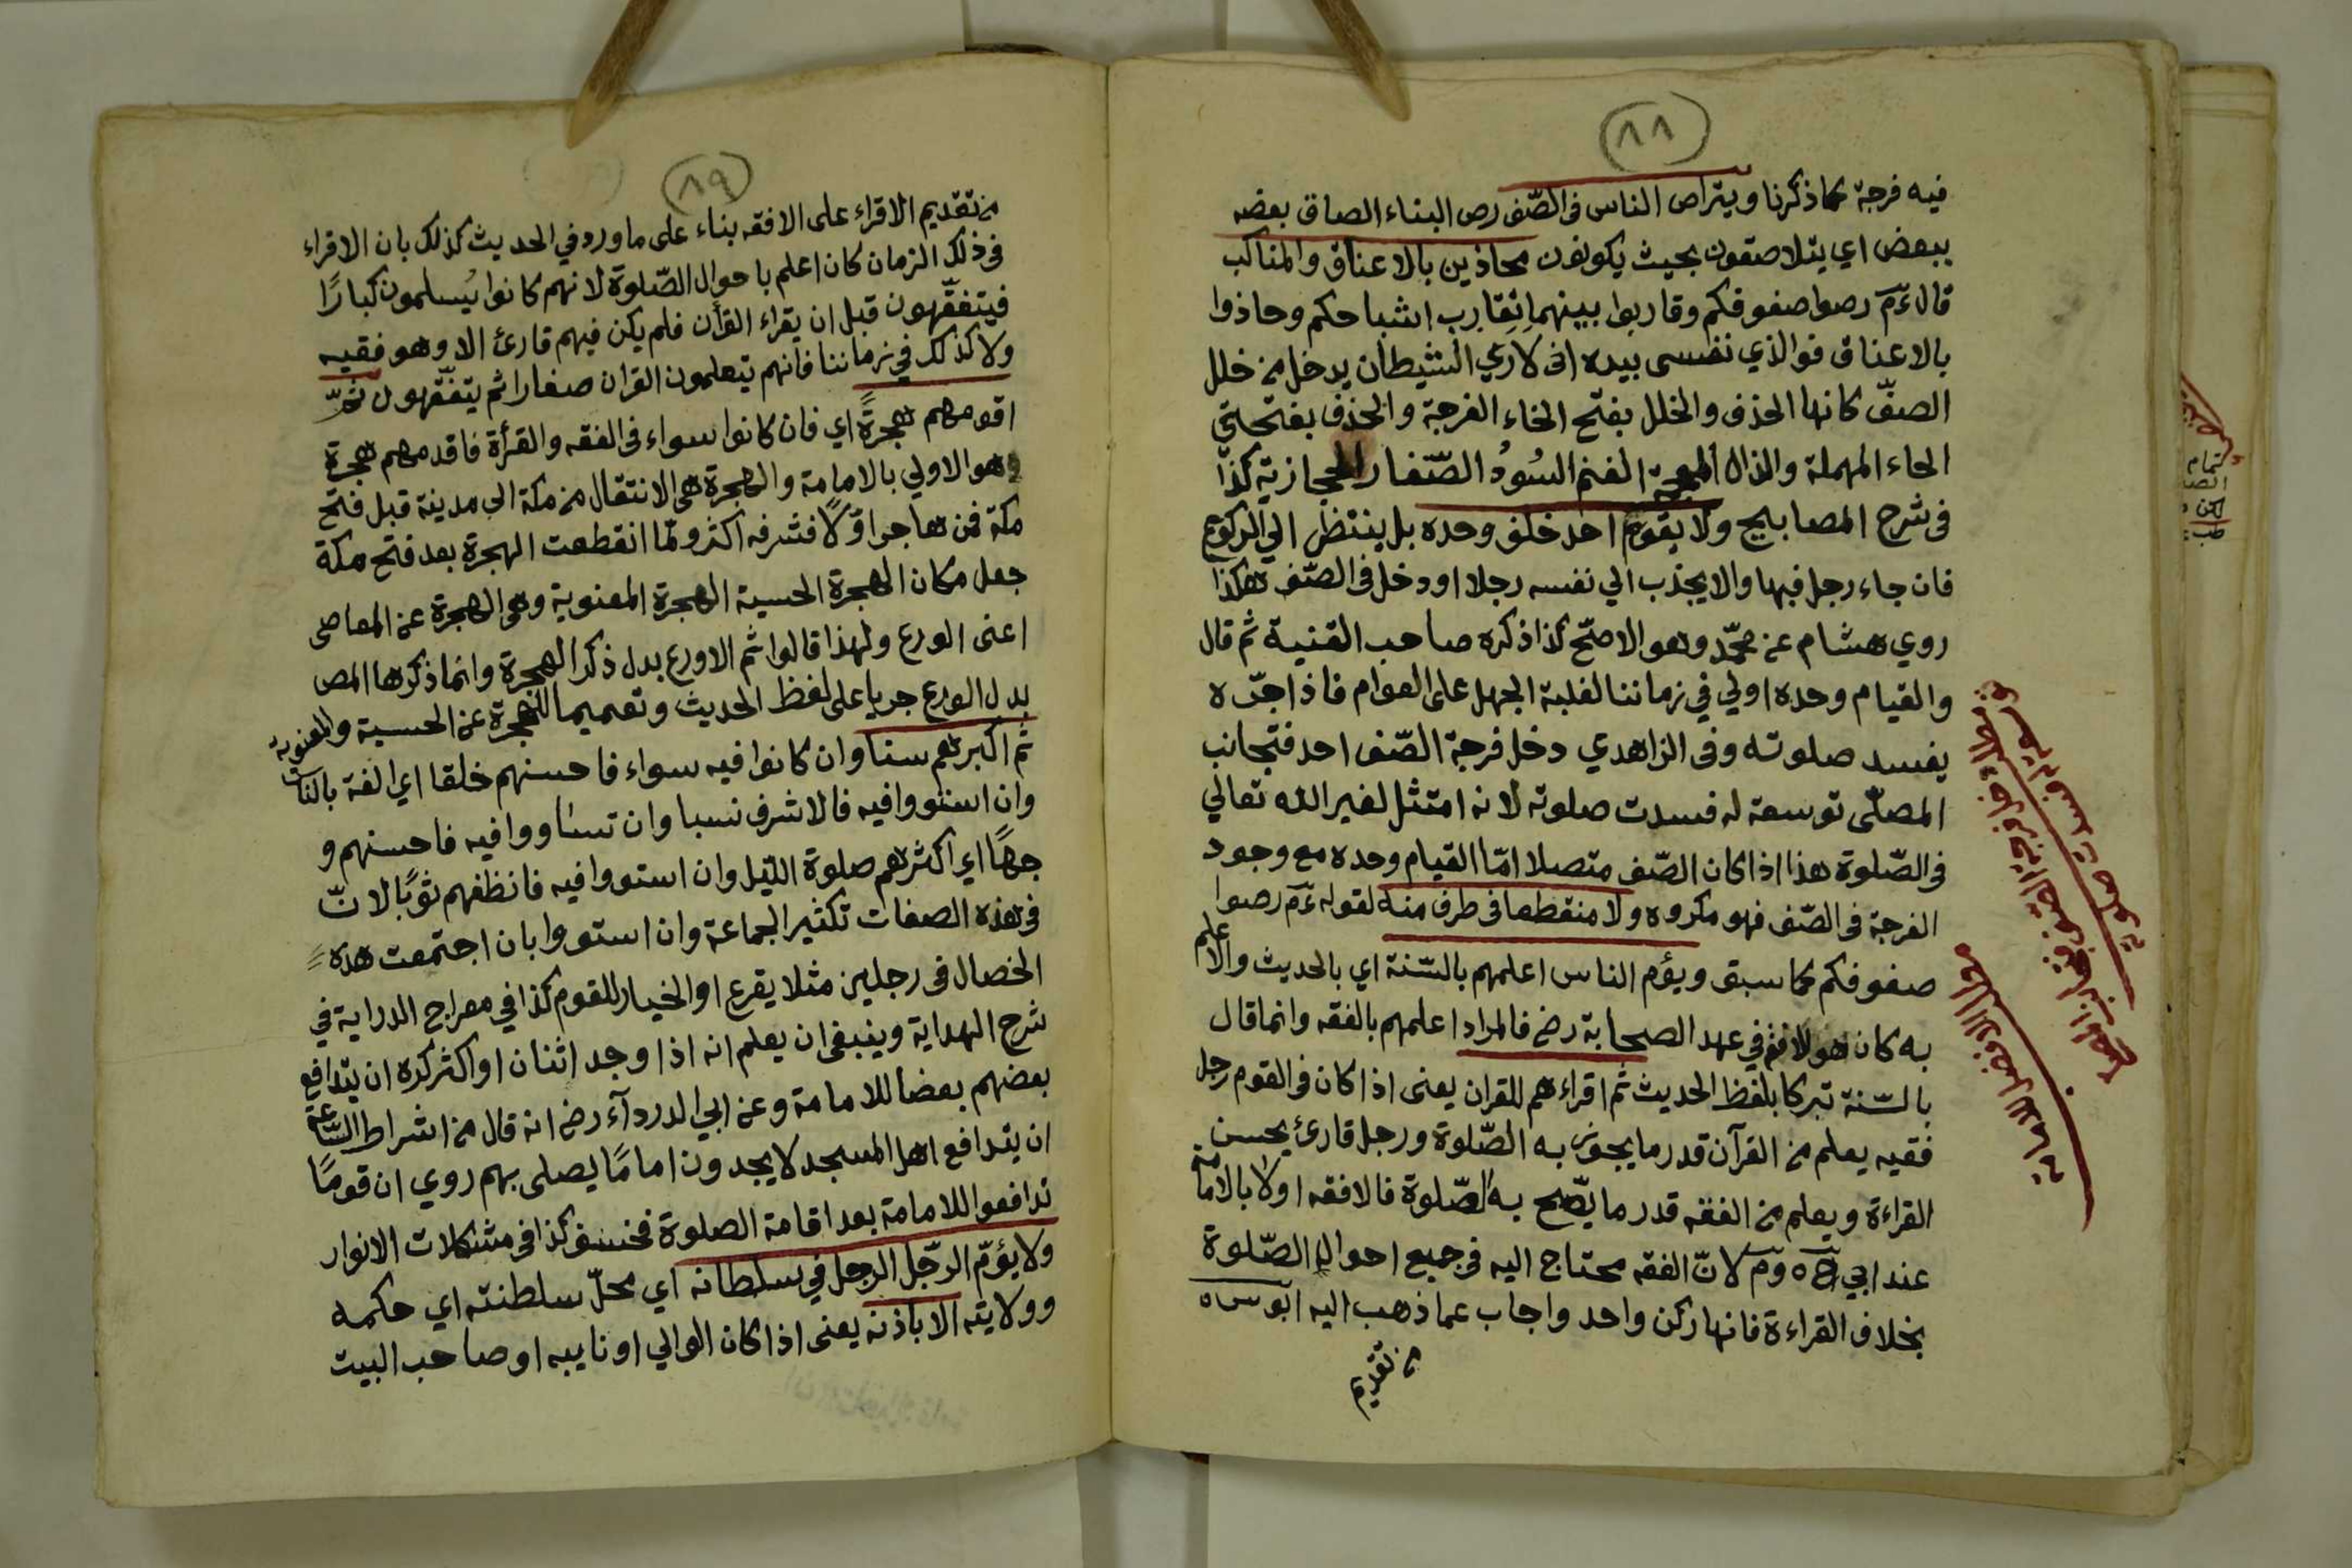 (٨٨)
فيه فرجة كما ذكرنا ويتراص الناس فى الصّف رص البناء الصاق بعضه
ببعض اي يتلاصقون بحيث يكونون محاذين بالاعناق والمناكب
قال ءَم رصوا صفوفكم وقاربوا بينهما تقارب اشباحكم وحاذوا
بالاعناق فوالذي نفسى بيده انى لارى الشيطان يدخل من خلل
الصفّ كانها الحذف والخلل بفتح الخاء الفرجة والحذف بفتحتي
الحاء المهملة والذال المعجمة الغنم السُودُ الصّغار الحجازية كذا
فى شرح المصابيح ولا يقوم احد خلف وحده بل ينتظر الي الركوع
فان جاء رجل فبها والا يجذب الي نفسه رجلا او دخل فى الصّف هكذا
روي هشام عن محمّد وهو الاصحّ كذا ذكره صاحب القنية ثم قال
والقيام وحده اولي في زماننا لغلبة الجهل على العوام فاذا جرّه
يفسد صلوته وفى الزاهدي دخل فرجة الصّف احد فتجانب
المصلّى توسعة له فسدت صلوته لانه امتثل لغير الله تعالي
فى الصّلوة هذا اذا كان الصّف متصلا امّا القيام وحده مع وجود
الفرجة فى الصّف فهو مكروه ولا منقطعا فى طرف منه لقوله ءَم رصوا
صفوفكم كما سبق ويؤم الناس اعلمهم بالسّنة اي بالحديث والاعلم
به كان هو الافقه في عهد الصحابة رض فالمراد اعلمهم بالفقه وانما قال
بالسّنة تبركا بلفظ الحديث ثم اقراءهم للقران يعنى اذا كان فى القوم رجل
فقيه يعلم من القرآن قدر ما يجوز به الصّلوة ورجل قارئ يحسن
القراءة ويعلم من الفقه قدر ما يصّح به الصّلوة فالافقه اولا بالامامة
عند ابي ح ه وم لانّ الفقه محتاج اليه فى جميع احوال الصّلوة
بخلاف القراءة فانها ركن واحد واجاب عما ذهب اليه ابو س ه
من تقديم
(٨٩)
من تقديم الاقراء على الافقه بناء على ما ورد في الحديث كذلك بان الاقراء
فى ذلك الزمان كان اعلم باحوال الصّلوة لانهم كانوا يُسلمون كبارًا
فيتفقّهون قبل ان يقراء القرأن فلم يكن فيهم قارئ الا وهو فقيه
ولا كذلك في زماننا فانهم يتعلمون القران صغارا ثم يتفقّهون ثمّ
اقدمهم هجرةً اي فان كانوا سواء فى الفقه والقرأة فاقدمهم هجرة
وهو الاولي بالامامة والهجرة هى الانتقال من مكة الى مدينة قبل فتح
مكة فمن هاجر اوّلًا فشرفه اكثر ولمّا انقطعت الهجرة بعد فتح مكة
جعل مكان الهجرة الحسية الهجرة المعنوية وهى الهجرة عن المعاصى
اعنى الورع ولهذا قالوا ثم الاورع بدل ذكر الهجرة وانما ذكرها المص
بدل الورع جريا على لفظ الحديث وتعميما للهجرة عن الحسية والمعنوية
ثم اكبرهم سنا وان كانوا فيه سواء فاحسنهم خلقا اي الفة بالناس
وان استووا فيه فالاشرف نسبا وان تساووا فيه فاحسنهم و
جهًا اي اكثرهم صلوة اللّيل وان استووا فيه فانظفهم ثوبًا لانّ
فى هذه الصفات تكثير الجماعة وان استووا بان اجتمعت هذه
الخصال فى رجلين مثلا يقرع او الخيار للقوم كذا في معراج الدراية في
شرح الهداية وينبغى ان يعلم انه اذا وجد اثنان او اكثر كره ان يتدافع
بعضهم بعضا للامامة وعن ابي الدردآء رض انه قال من اشراط السّاعة
ان يتدافع اهل المسجد لا يجدون امامًا يصلى بهم روي ان قومًا
تدافعوا للامامة بعد اقامة الصلوة فخسف كذا فى مشكلات الانوار
ولا يؤمّ الرّجل الرجل في سلطانه اي محلّ سلطنته اي حكمه
وولايته الا باذنه يعنى اذا كان الوالي او نايبه او صاحب البيت